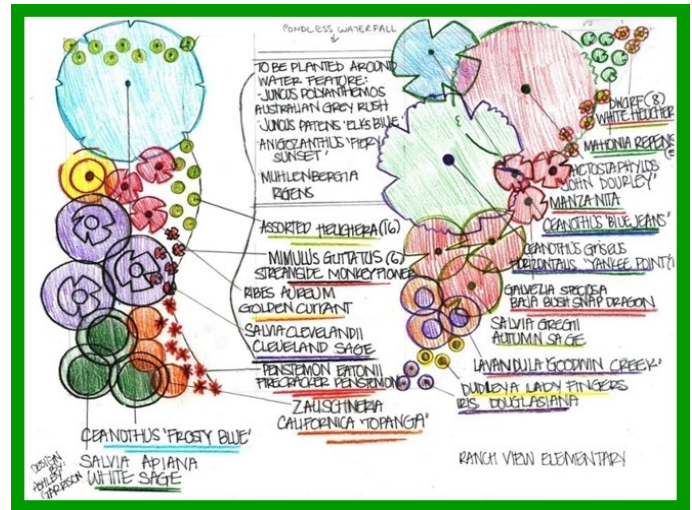 PONDLESS WATERFALL
TO BE PLANTED AROUND
WATER FEATURE:
-JUNCUS POLYANTHEMOS
AUSTRALIAN GREY RUSH
-JUNCUS PATENS 'ELK'S BLUE'
-ANIGOZANTHUS 'FIERY
SUNSET'
MUHLENBERGIA
RIGENS
ASSORTED HEUCHERA (16)
MIMULUS GUTTATUS (6)
STREAMSIDE MONKEYFLOWER
RIBES AUREUM
GOLDEN CURRANT
SALVIA CLEVELANDII
CLEVELAND SAGE
PENSTEMON EATONII
FIRECRACKER PENSTEMON
ZAUSCHNERIA
CALIFORNICA 'TOPANGA'
CEANOTHUS 'FROSTY BLUE'
SALVIA APIANA
WHITE SAGE
DESIGN
BY:
ASHLEY
GARRISON
DWARF (8)
WHITE HEUCHER
MAHONIA REPENS
ARCTOSTAPHYLOS
'JOHN DOURLEY'
MANZANITA
CEANOTHUS 'BLUE JEANS'
CEANOTHUS GRISEUS
HORIZONTALIS 'YANKEE POINT'
GALVEZIA SPECIOSA
BAJA BUSH SNAPDRAGON
SALVIA GREGII
AUTUMN SAGE
LAVANDULA 'GOODWIN CREEK'
DUDLEYA LADY FINGERS
IRIS DOUGLASIANA
RANCH VIEW ELEMENTARY